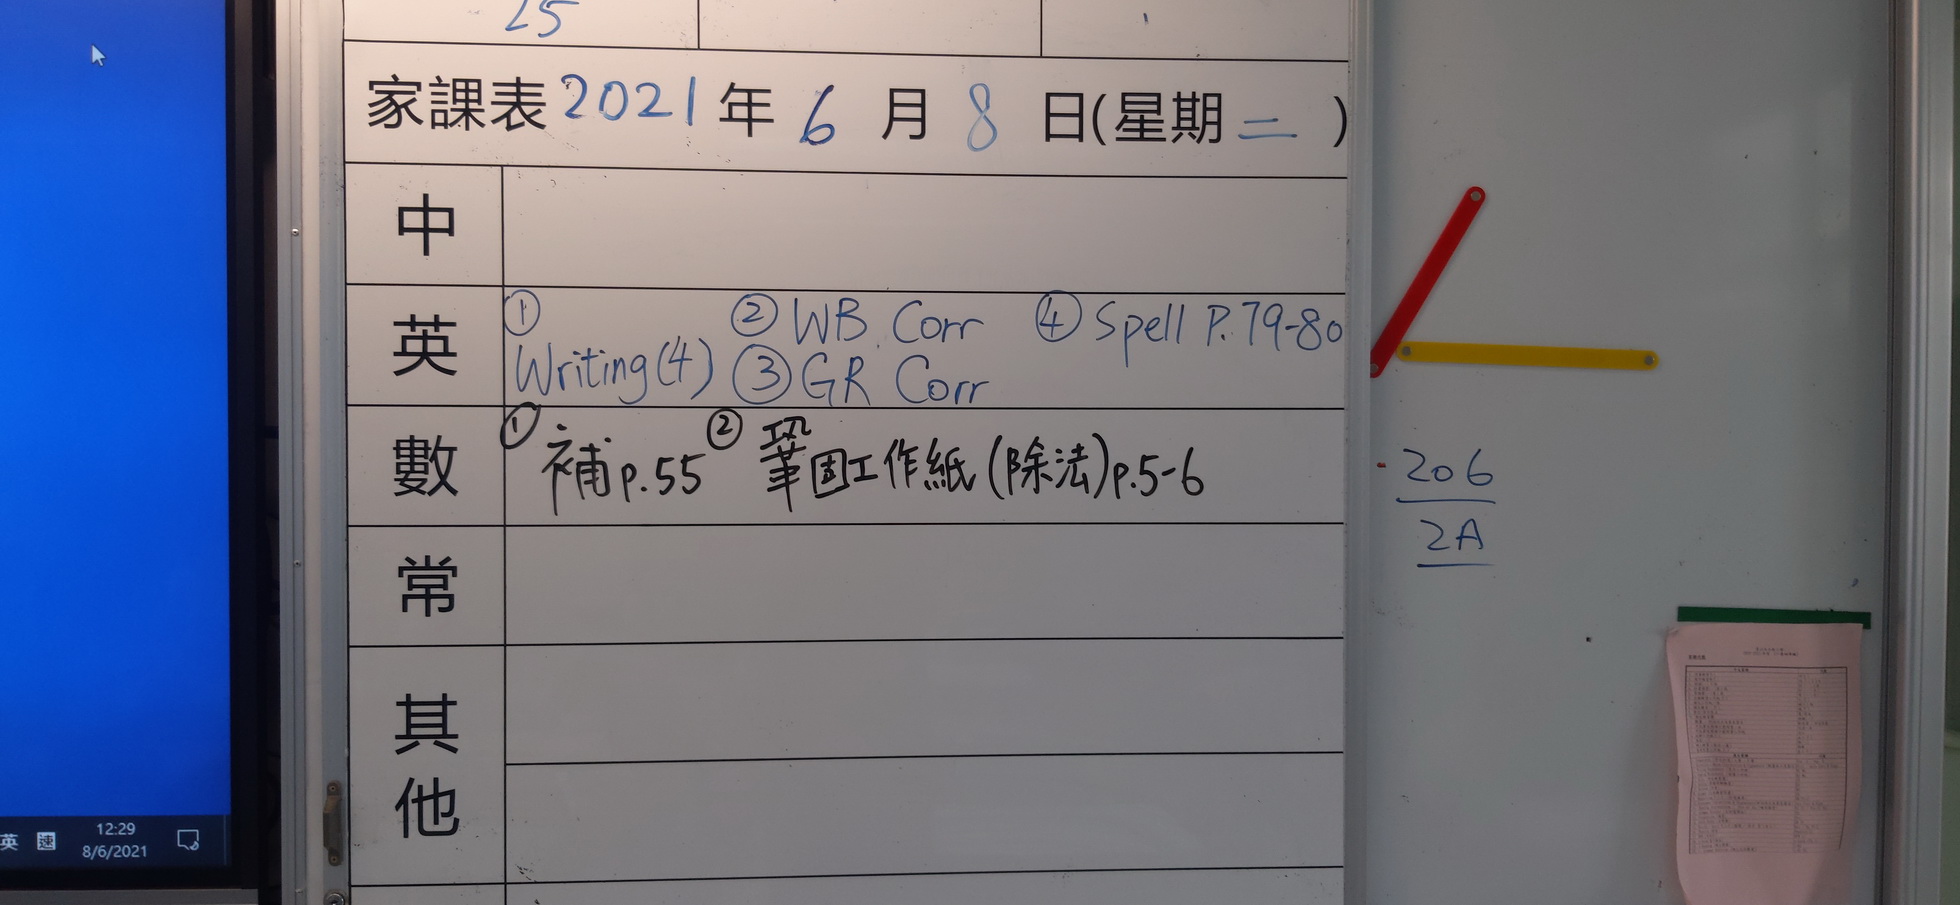 25
家課表 2021 年 6 月 8 日(星期二)
中
英
① Writing(4)
② WB Corr
③ GR Corr
④ Spell P.79-80
數
① 補p.55 ② 鞏固工作紙(除法)p.5-6
常
其他
206
2A
英 速 12:29
8/6/2021